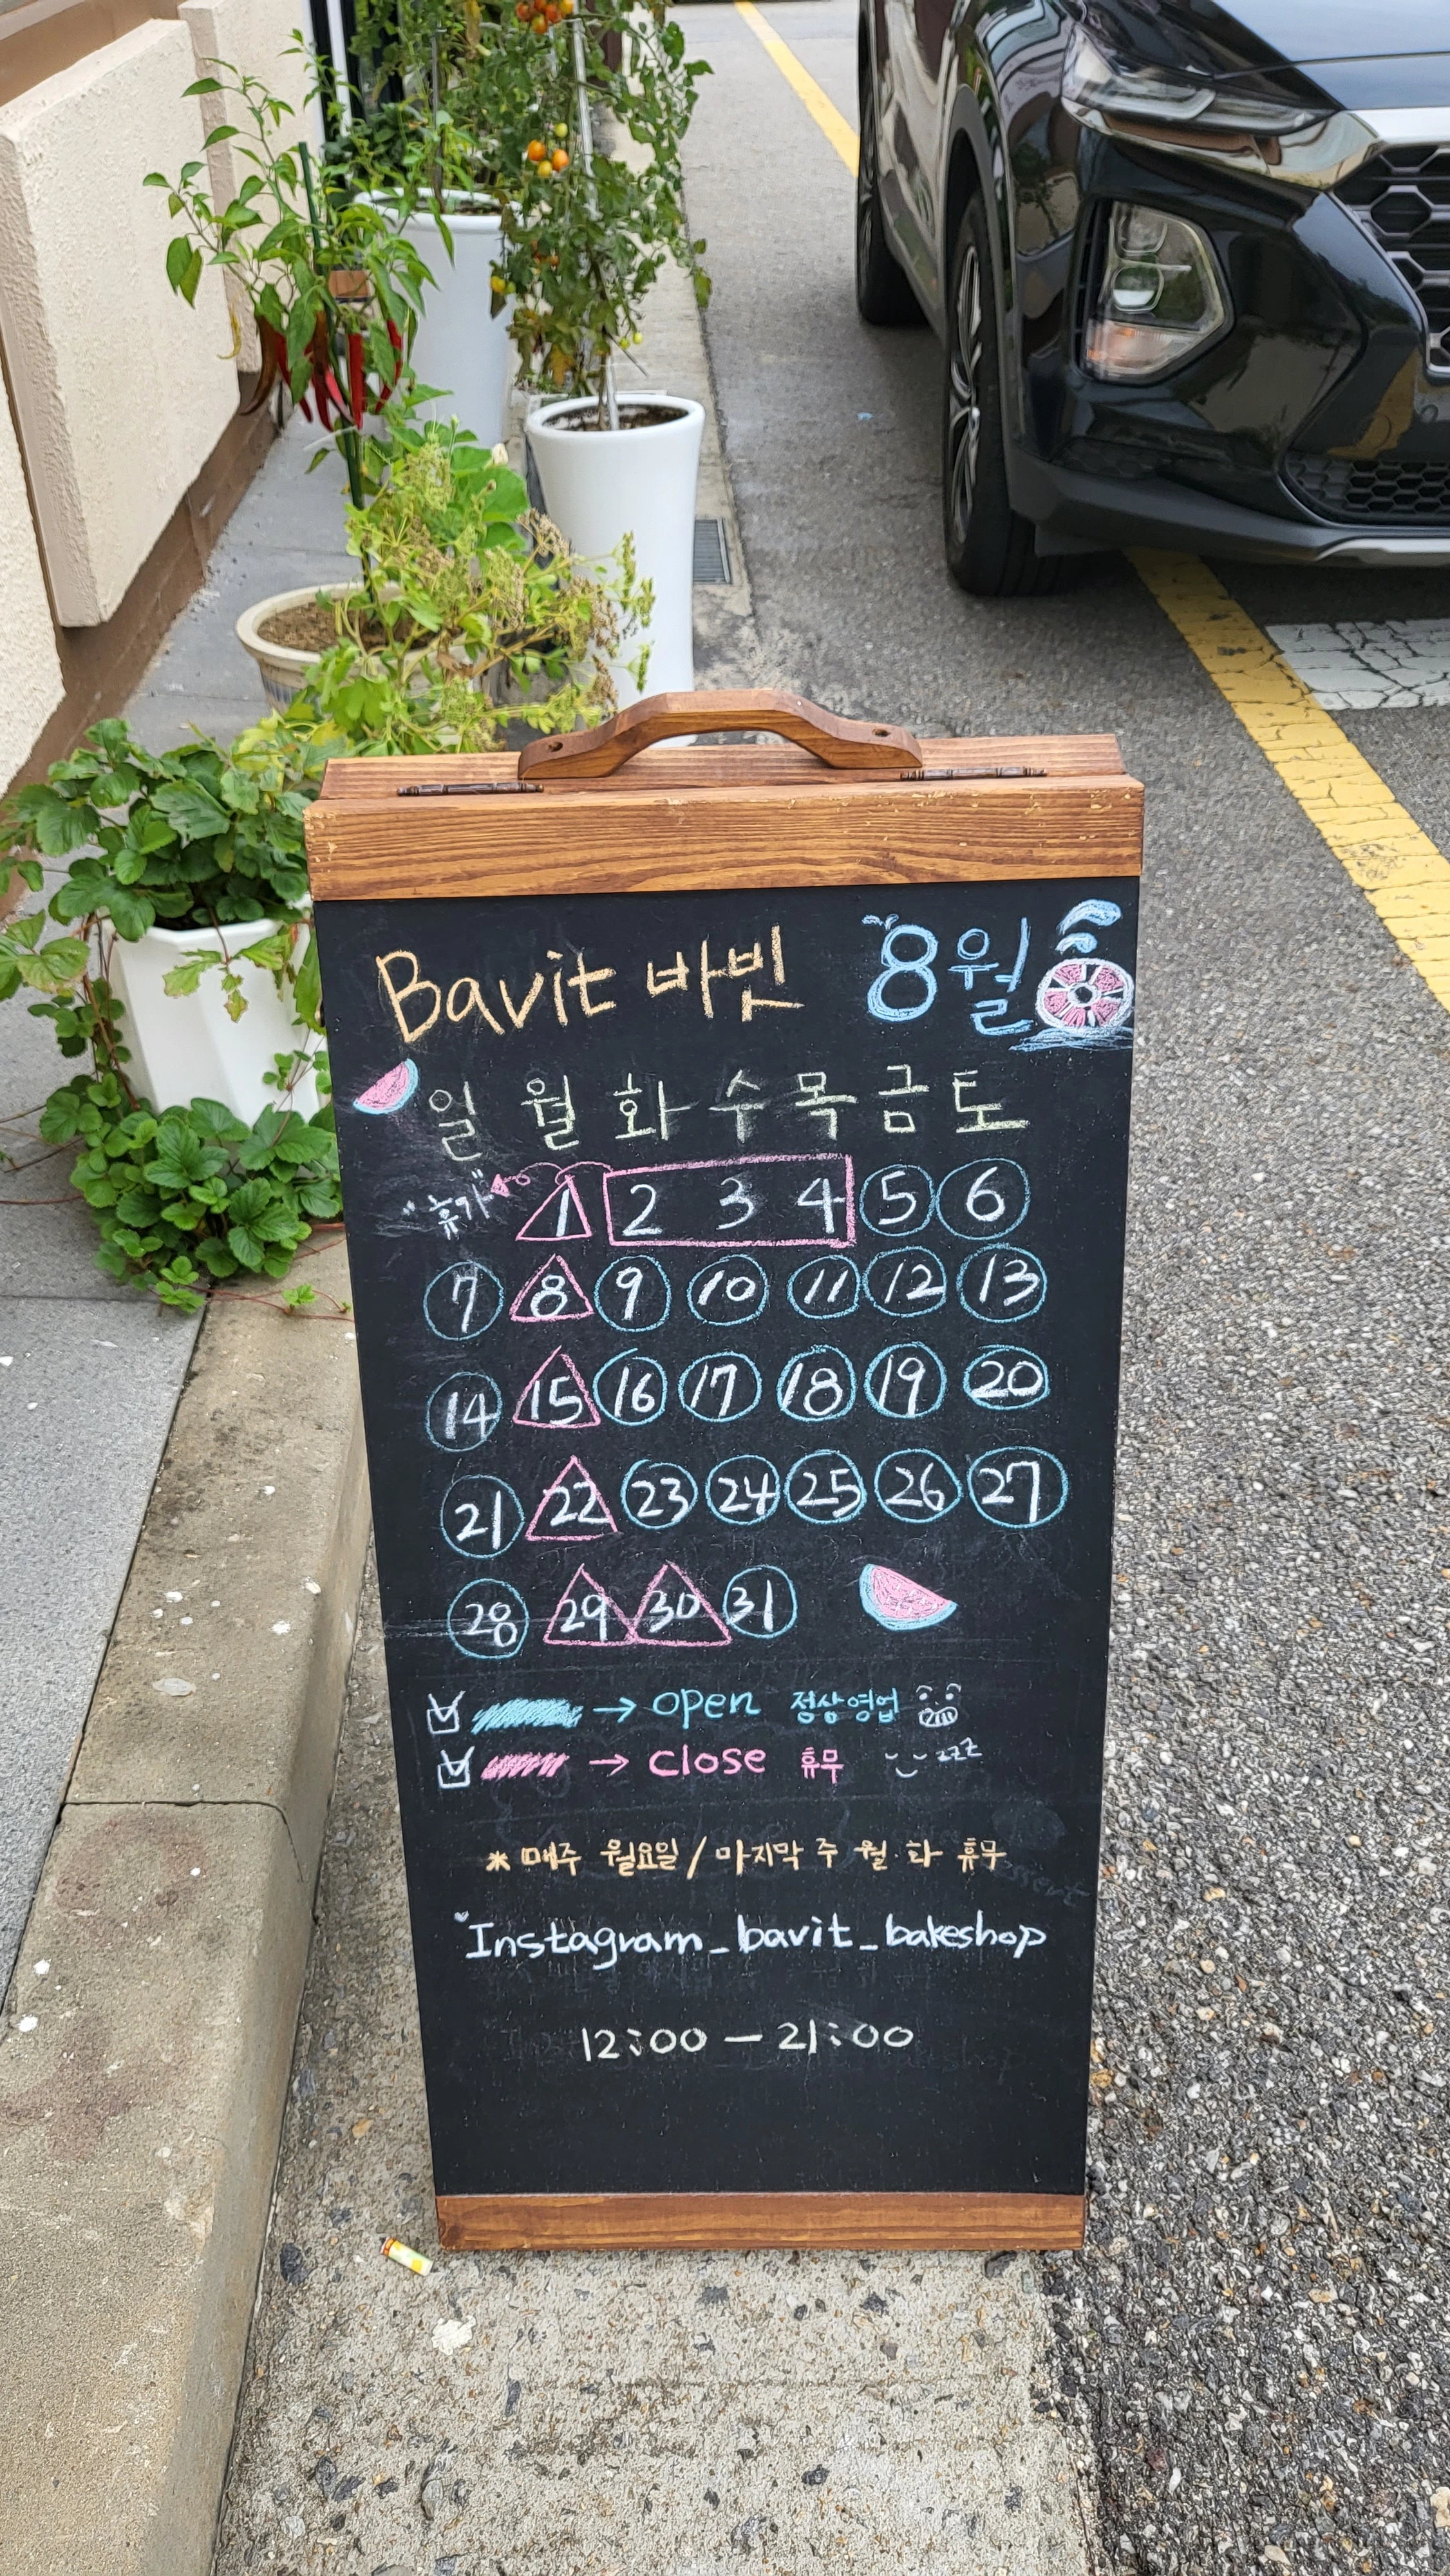 Bavit 바빗 8월
일 월 화 수 목 금 토
"휴가" 1 2 3 4 5 6
7 8 9 10 11 12 13
14 15 16 17 18 19 20
21 22 23 24 25 26 27
28 29 30 31
→ open 정상영업
→ close 휴무 zzz
* 매주 월요일 / 마지막 주 월·화 휴무
Instagram_bavit_bakeshop
12:00 - 21:00